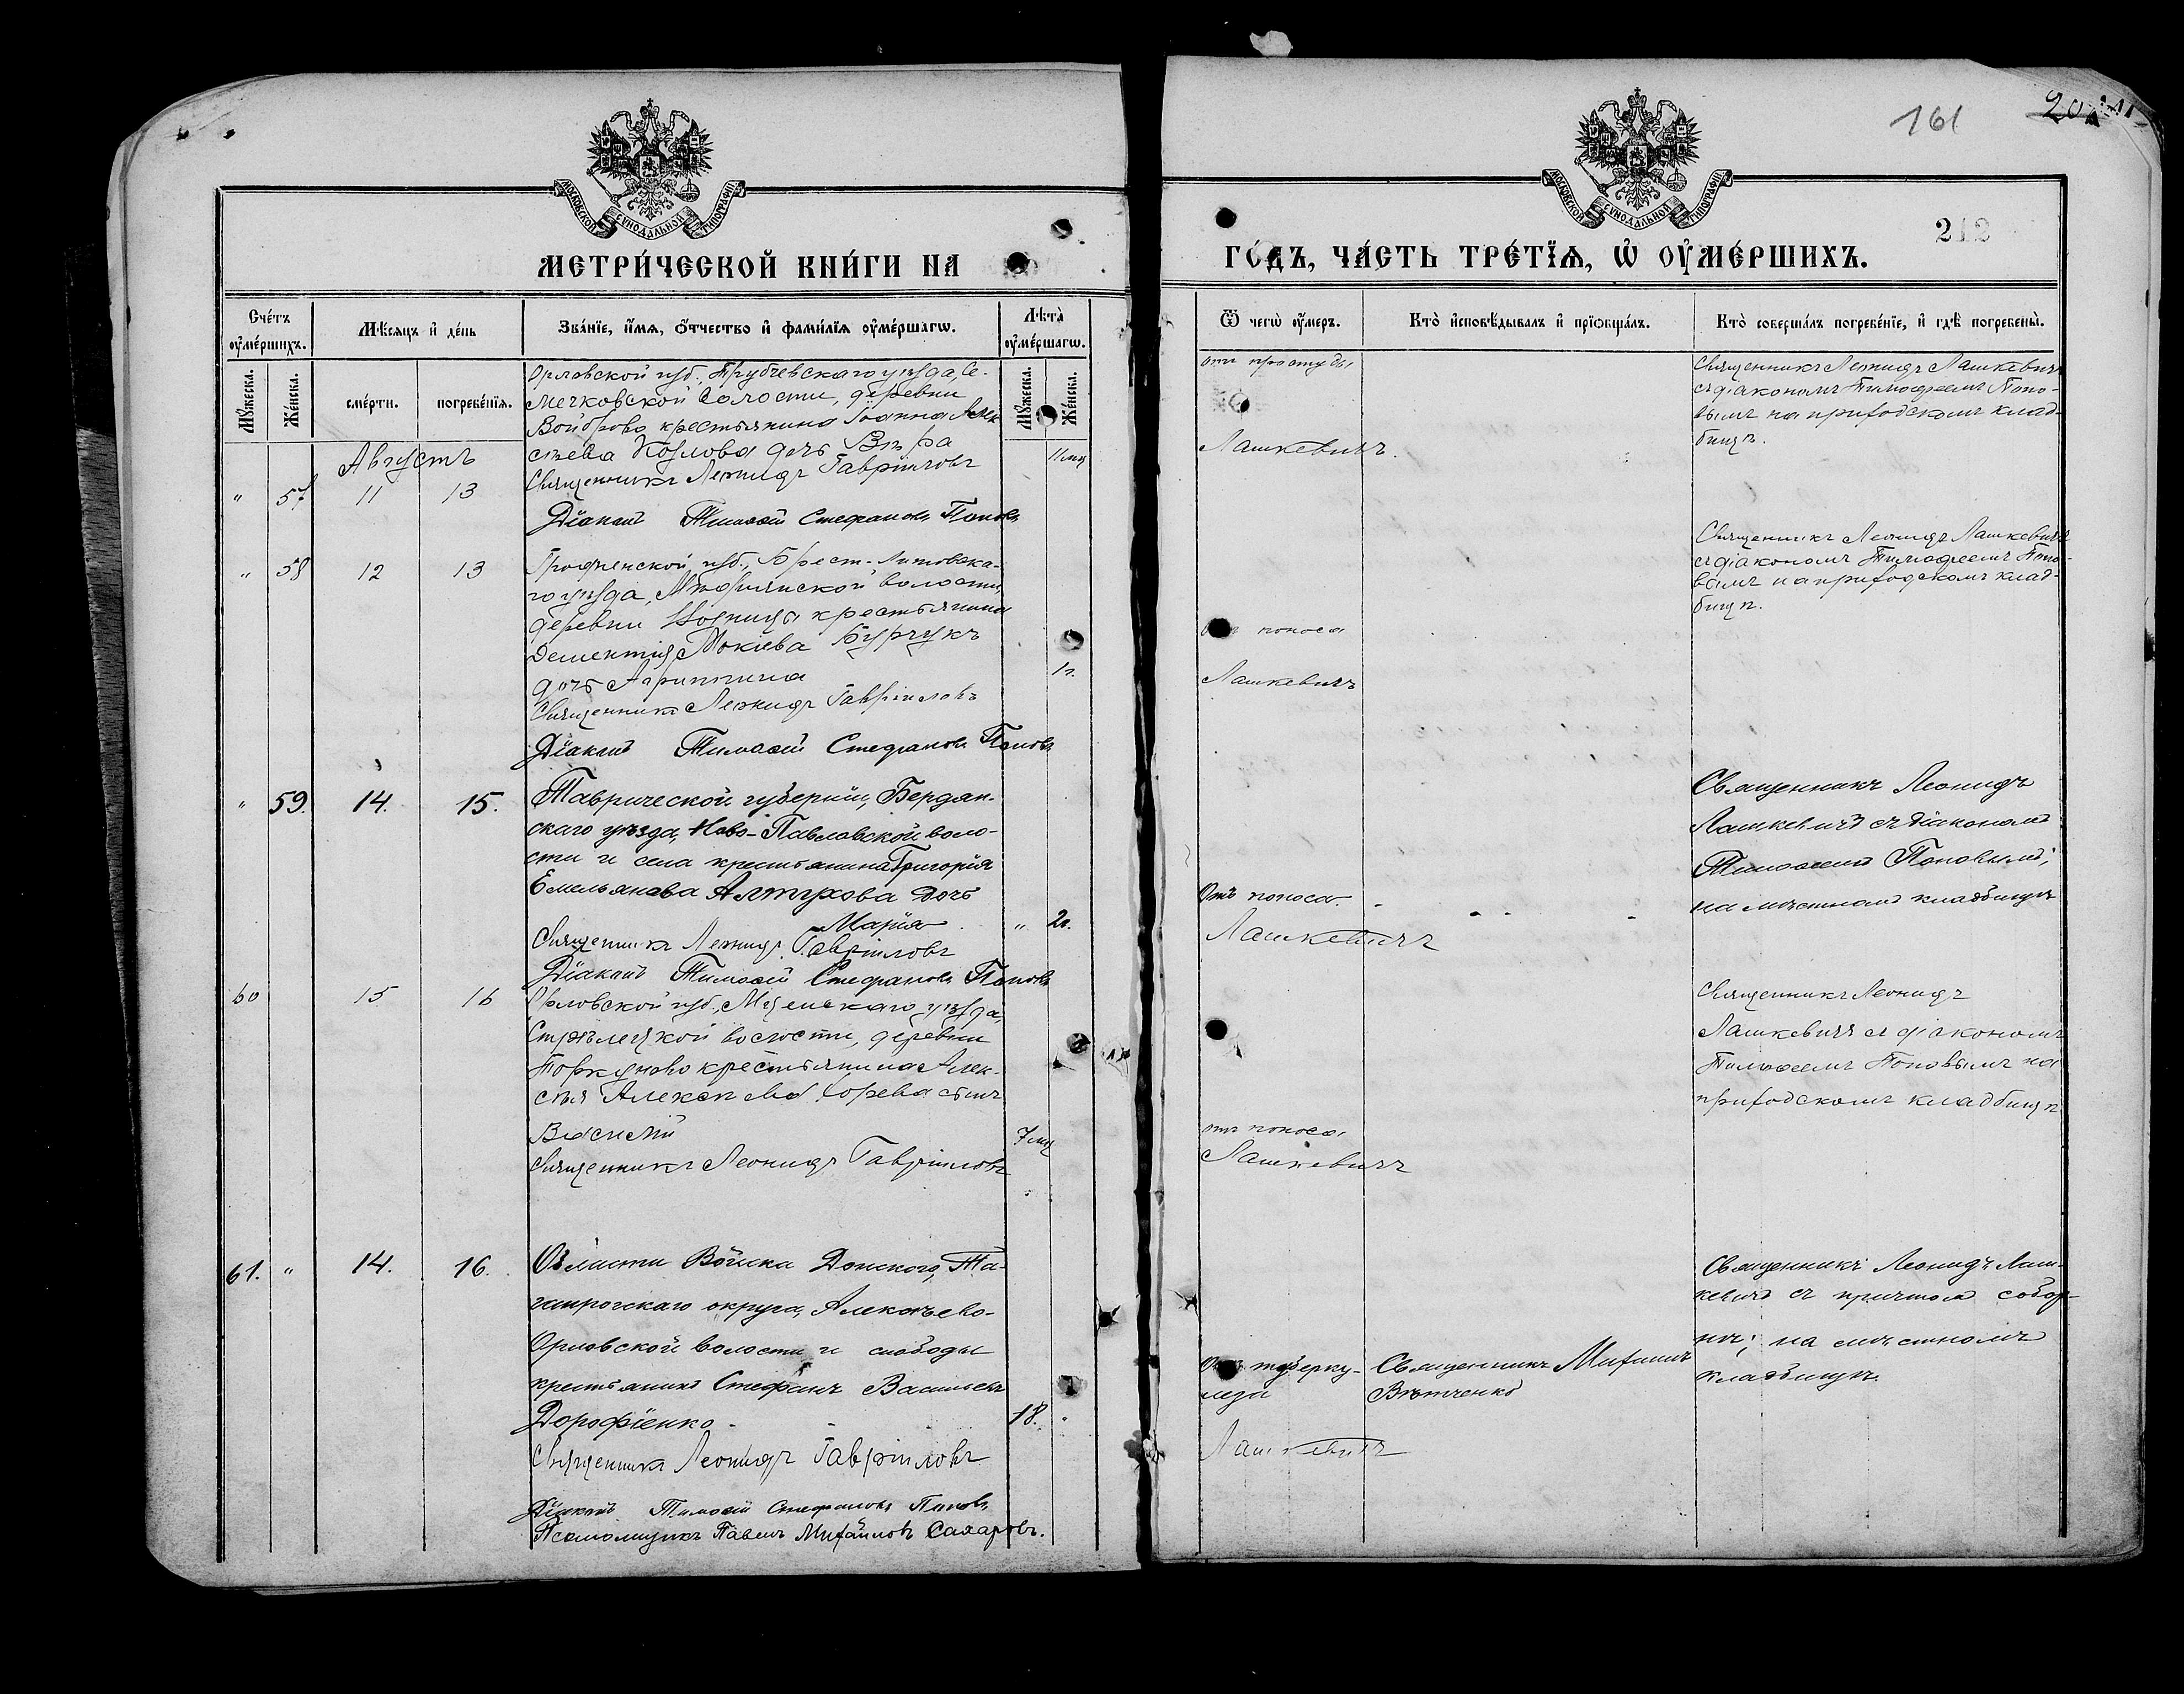 161
МОСКОВСКОЙ СУНОДАЛЬНОЙ ТИПОГРАФІИ
МОСКОВСКОЙ СУНОДАЛЬНОЙ ТИПОГРАФІИ
212
МЕТРИ́ЧЕСКОЙ КНИ́ГИ НА
ГО́ДЪ, ЧА́СТЬ ТРЕ́ТЇѦ, Ѡ҆ ОУ҆МЕ́РШИХЪ.
Сче́тъ оу҆ме́ршихъ.
Мѣ́сяцъ и҆ де́нь
Зва́нїе, и҆́мя, ѻ҆́тчество и҆ фами́лїя оу҆ме́ршагѡ.
Лѣта̀ оу҆ме́ршагѡ.
Ѿ чегѡ̀ оу҆́меръ.
Кто̀ и҆сповѣ́дывалъ и҆ прїѻбща́лъ.
Кто̀ соверша́лъ погребе́нїе, и҆ гдѣ̀ погребены̀.
Мꙋ́жеска.
Же́нска.
сме́рти.
погребе́нїя.
Мꙋ́жеска.
Же́нска.
Августъ
" 57 11 13
Орловской губ., Трубчевскаго уѣзда, Се-
мечковской волости, деревни
крестьянина Іоанна Алек
сѣева Козлова дочь Вѣра
11 мц
Священникъ Леонидъ Гавріиловъ
Діаконъ Тимоѳей Стефановъ Поповъ
отъ простуды
Лашкевичъ.
Священникъ Леонидъ Лашкевичъ
съ діакономъ Тимофеемъ Попо-
вымъ на приходскомъ клад-
бищѣ.
" 58 12 13
Гродненской губ., Брест-Литовска-
го уѣзда, волости,
деревни крестьянина
Дементія Мокіева Бурчукъ
дочь
1 г.
Священникъ Леонидъ Гавріиловъ
Діаконъ Тимоѳей Стефановъ Поповъ
отъ поноса
Лашкевичъ
Священникъ Леонидъ Лашкевичъ
съ діакономъ Тимофеемъ Попо-
вымъ на приходскомъ клад-
бищѣ.
" 59. 14. 15.
Таврической губерніи, Бердян-
скаго уѣзда, Ново-Павловской воло-
сти и села крестьянина Григорія
Емельянова Алтухова дочь
Марія
" 2 г.
Священникъ Леонидъ Гавріиловъ
Діаконъ Тимоѳей Стефановъ Поповъ
Отъ поноса.
Лашкевичъ
Священникъ Леонидъ
Лашкевичъ съ діакономъ
Тимоѳеемъ Поповымъ;
на мѣстномъ кладбищѣ
60 15 16
Орловской губ., Мценскаго уѣзда,
Стрѣлецкой волости, деревни
крестьянина Алек-
сѣя Алексѣева сынъ
Василій
7 мц
Священникъ Леонидъ Гавріиловъ
отъ поноса
Лашкевичъ
Священникъ Леонидъ
Лашкевичъ съ діакономъ
Тимоѳеемъ Поповымъ на
приходскомъ кладбищѣ
61. " 14. 16.
Области Войска Донского, Та-
ганрогскаго округа, Алексѣево-
Орловской волости и слободы
крестьянинъ Стефанъ Васильевъ
Дорофіенко
18. "
Священникъ Леонидъ Гавріиловъ
Діаконъ Тимоѳей Стефановъ Поповъ
Псаломщикъ Павелъ Михайловъ Сахаровъ.
Отъ туберку-
леза
Лашкевичъ
Священникъ Михаилъ
Вѣтченко
Священникъ Леонидъ Лаш-
кевичъ съ причтомъ собор-
нѣ; на мѣстномъ
кладбищѣ.